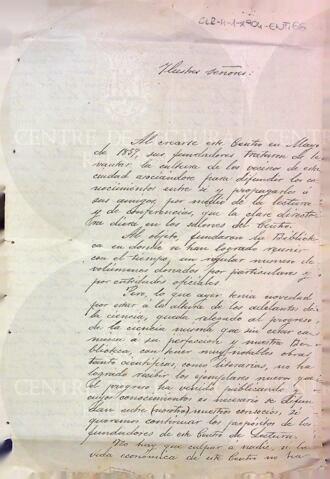 CLR-11-1-1904-ENT/ES
Ilustres señores:
Al crearse este Centro en Mayo
de 1859, sus fundadores trataron de le
vantar la cultura de los vecinos de esta
ciudad asociándose para difundir los co
nocimientos entre sí y propagarlos á
sus amigos, por medio de la lectura
y de conferencias, que la clase
diera, en los salones del Centro.
Al objeto, fundaron la Bibliote
ca en donde se han logrado reunir
con el tiempo, un regular número de
volúmenes donados por particulares y
por entidades oficiales.
Pero, lo que ayer tenía novedad
por estar á la altura de los adelantos de
la ciencia, queda relegado al progreso
de la ciencia misma que sin cesar ca
mina á su perfección y nuestra Bi
blioteca, con tener muy notables obras
tanto científicas, como literarias, no ha
logrado recibir los ejemplares nuevos que
el progreso ha venido publicando y
cuyos conocimientos es necesario se difun
dan entre (nosotros) nuestros consocios, si
queremos continuar los propósitos de los
fundadores de este Centro de Lectura.
No hay que culpar á nadie, si la
vida económica de este Centro no ha
CENTRE DE LECTURA
CENTRE DE LECTURA